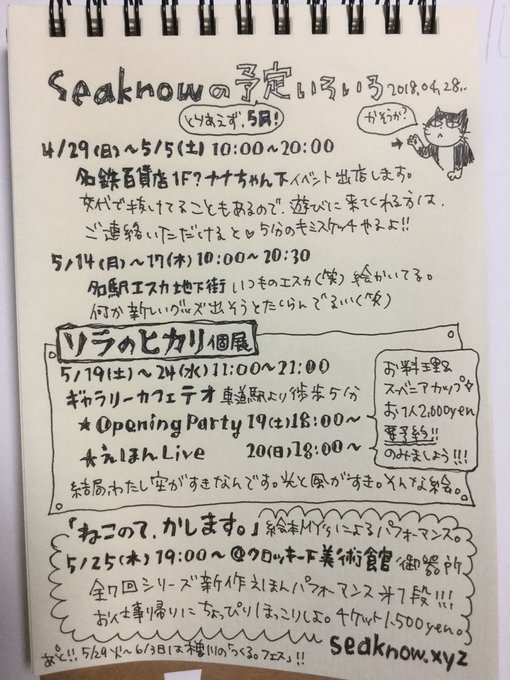 seaknowの予定いろいろ 2018.04.28..
とりあえず、5月!
かそうか?
4/29(日)〜5/5(土) 10:00〜20:00
名鉄百貨店1F?ナナちゃん下イベント出店します。
交代で抜けてることもあるので、遊びに来てくれる方は、
ご連絡いただけると♡5分のキミスケッチやるよ!!
5/14(月)〜17(木) 10:00〜20:30
名駅エスカ地下街 いつものエスカ(笑)絵かいてる。
何か新しいグッズ出そうとたくらんでるいく(笑)
ソラのヒカリ個展
5/19(土)〜24(水)11:00〜21:00
ギャラリーカフェテオ 車道駅より徒歩5分
★Opening Party 19(土)18:00〜
★えほんLive 20(日)18:00〜
お料理&
スーベニアカップ☆
お1人2,000yen
要予約!!
のみましょう!!!
結局、わたし空がすきなんです。光と風がすき。そんな絵。
「ねこのて、かします。」絵本MY'sによるパフォーマンス。
5/25(木)19:00〜@クロッキー下美術館 御器所
全7回シリーズ新作えほんパフォーマンス 第7段!!!
お仕事帰りにちょっぴりほっこりしよ。チケット1,500yen。
seaknow.xyz
あと!! 5/29(火)〜6/3(日)は種川の「らくる。フェス」!!